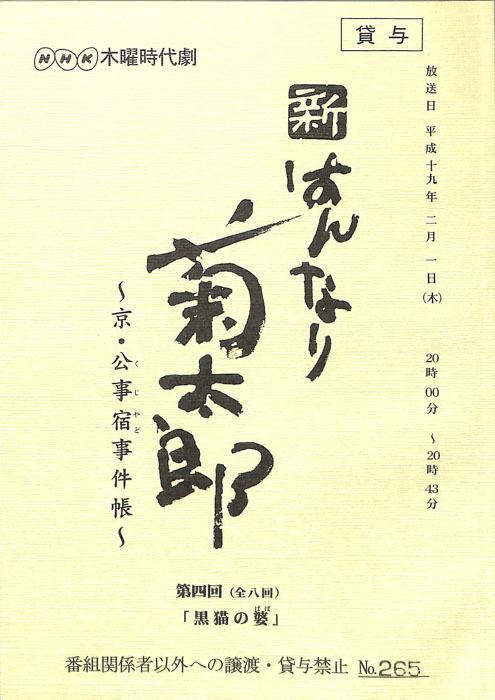 貸与
NHK木曜時代劇
放送日 平成十九年 二月 一日(木) 20時00分 ～20時43分
新
はんなり
菊太郎
～京・公事宿事件帳～
くじやど
第四回(全八回)
ばば
「黒猫の婆」
番組関係者以外への譲渡・貸与禁止 No.265